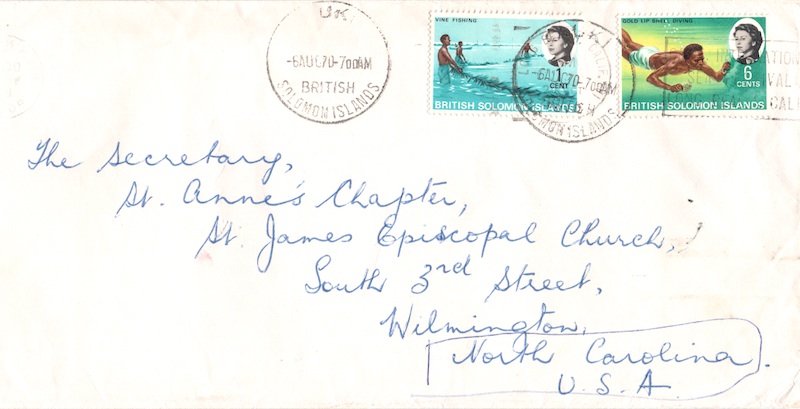 UKI
-6AUG70-700AM
BRITISH
SOLOMON ISLANDS
VINE FISHING
1
CENT
BRITISH SOLOMON ISLANDS
UKI
-6AUG70-700AM
GOLD LIP SHELL DIVING
6
CENTS
BRITISH SOLOMON ISLANDS
The Secretary,
St. Anne's Chapter,
St. James Episcopal Church,
South 3rd Street,
Wilmington,
North Carolina.
U.S.A.